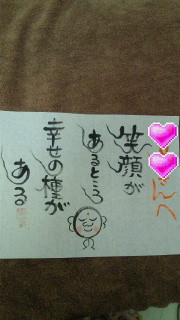 んへ
笑顔が
あるところ
幸せの種が
ある